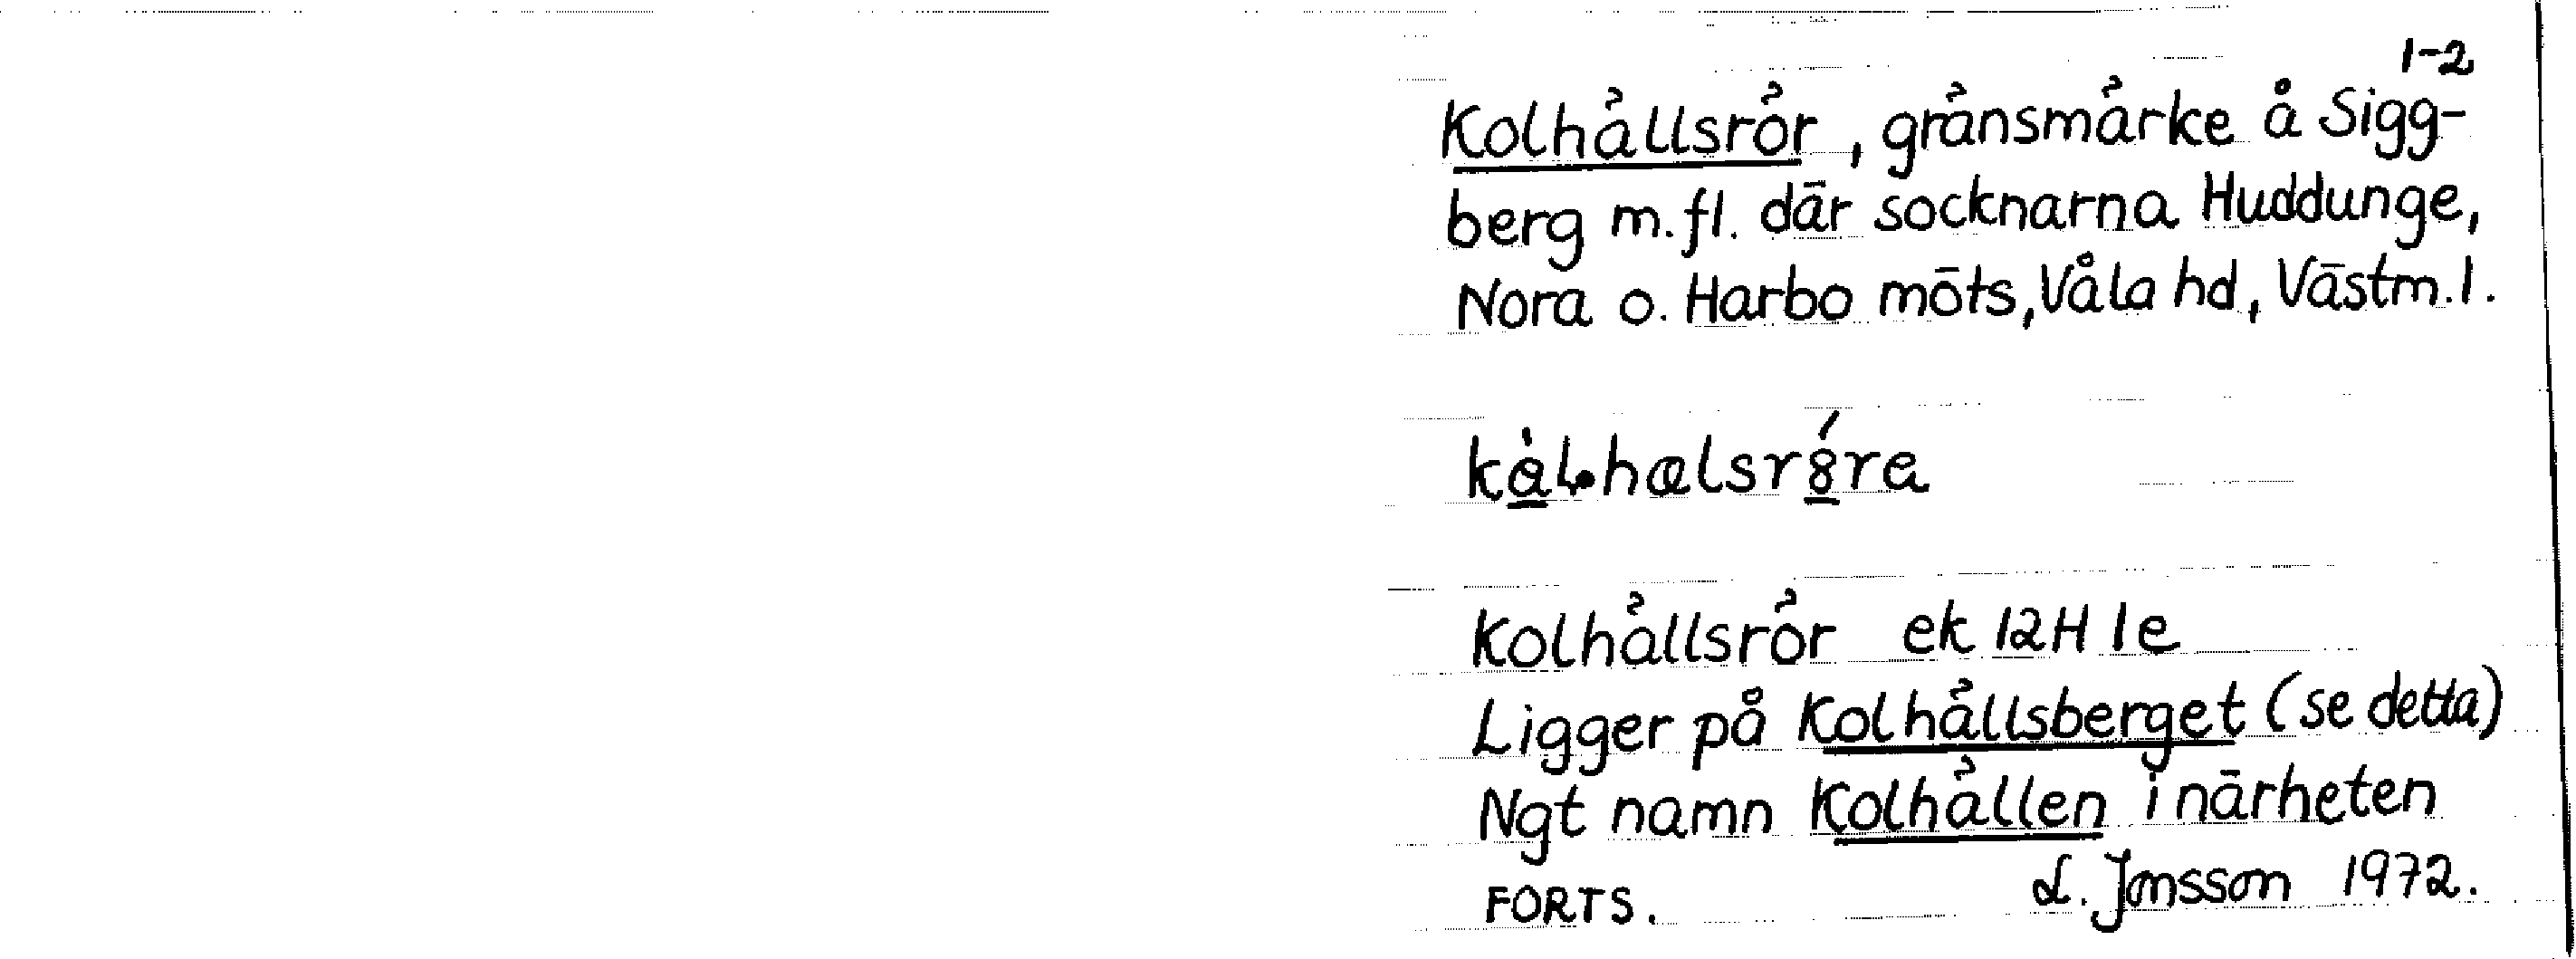 1-2
Kolhällsrör, gränsmärke å Sigg-
berg m.fl. där socknarna Huddunge,
Nora o. Harbo möts, Våla hd, Västm.l.
Kolhällsrör ek 12H 1e
Ligger på Kolhällsberget (se detta)
Ngt namn Kolhällen i närheten
FORTS. L. Jonsson 1972.